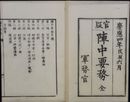 慶應四年戊辰六月
官版
陣中要務 全
軍務官